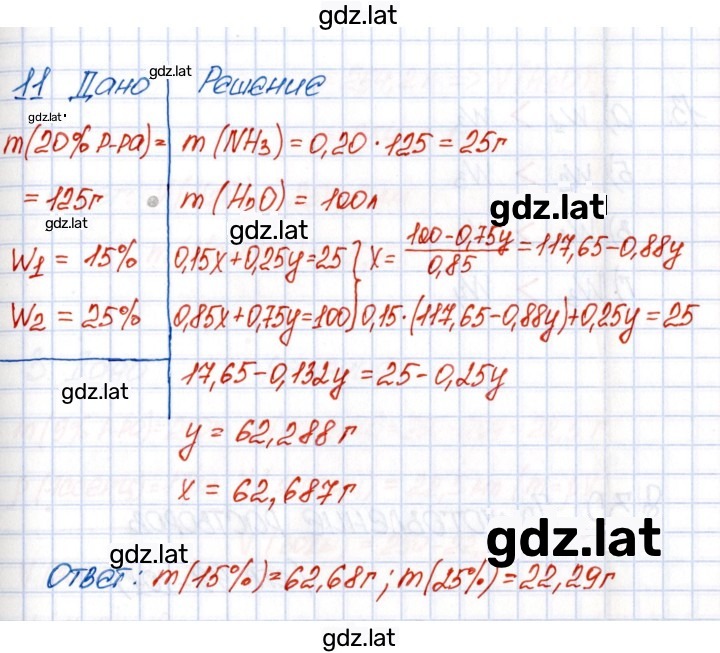 gdz.lat
11 Дано gdz.lat Решение
gdz.lat
m(20% р-ра)= m(NH3) = 0,20 · 125 = 25г
= 125г m(H2O) = 100л
gdz.lat gdz.lat gdz.lat
W1 = 15% 0,15x+0,25y=25 } x = (100-0,75y)/0,85 = 117,65-0,88y
W2 = 25% 0,85x+0,75y=100 } 0,15·(117,65-0,88y)+0,25y = 25
17,65-0,132y = 25-0,25y
gdz.lat
y = 62,288г
x = 62,687г
gdz.lat gdz.lat
Ответ: m(15%)=62,68г; m(25%)=22,29г
gdz.lat